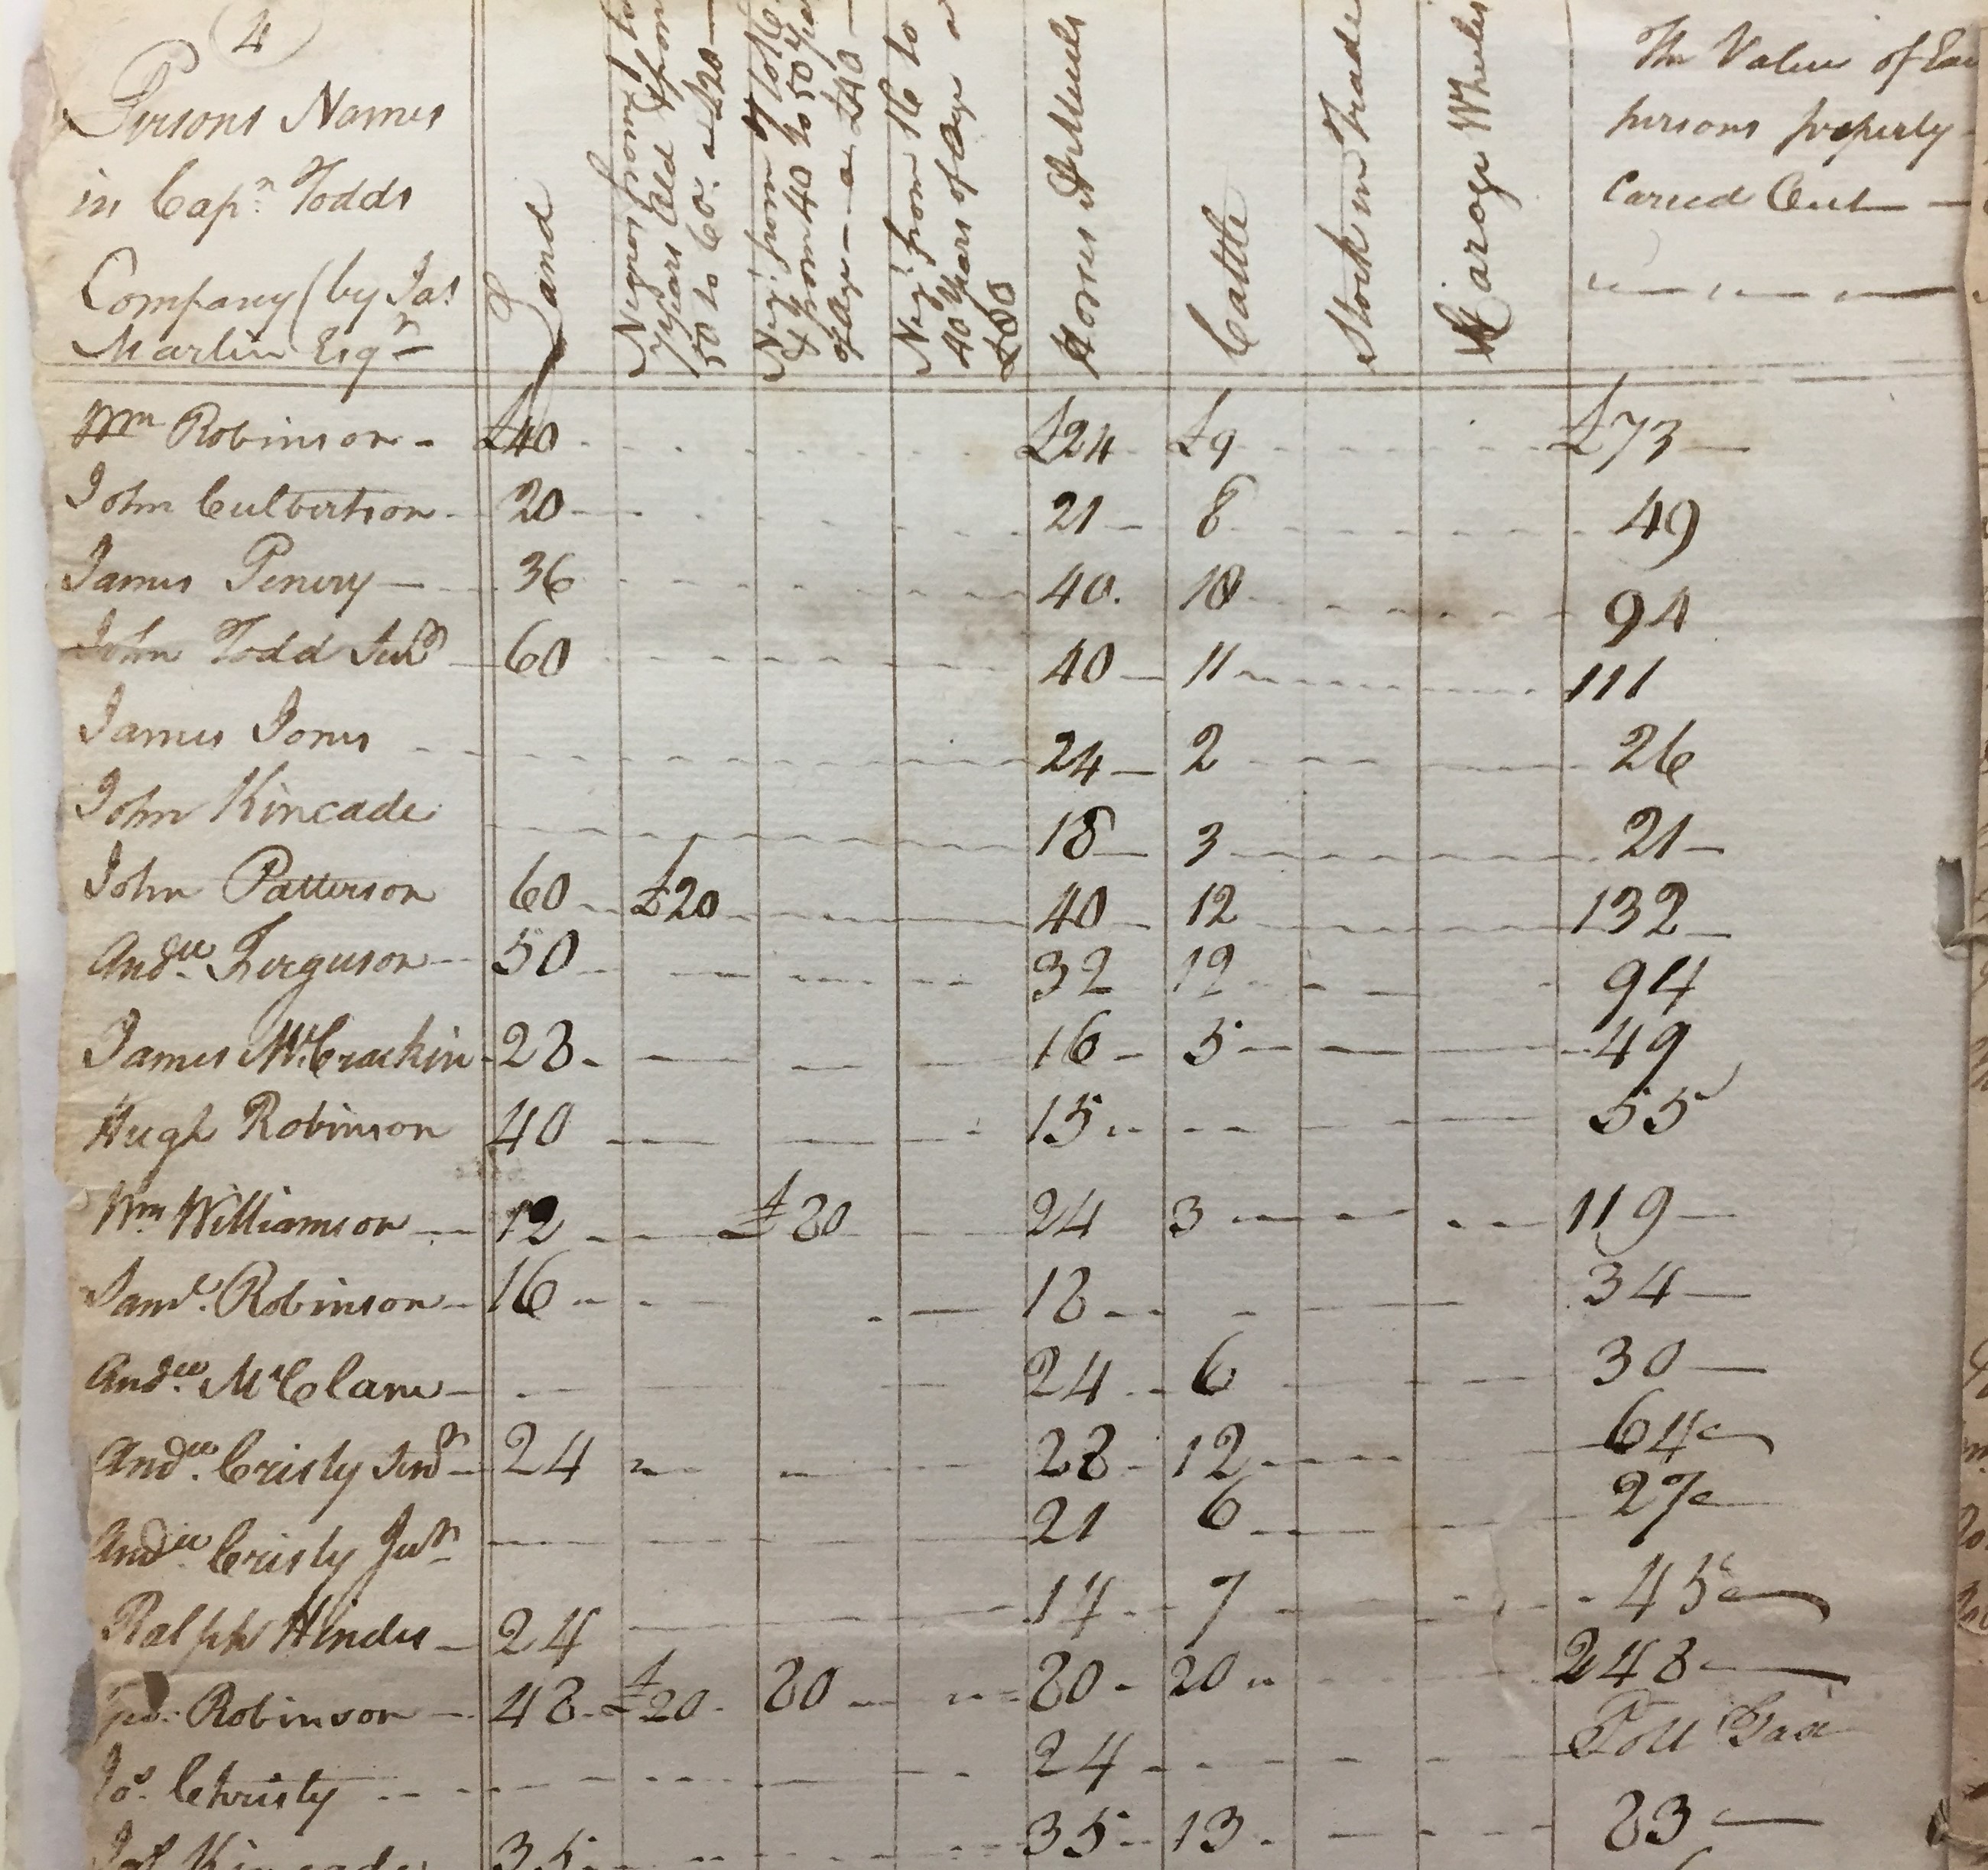 4
Persons Names
in Capn. Todds
Company (by Jas
Martin Esqr
Land
Years Old & from
50 to 60. a £20
from 40 to 50 Years
of Age — a £40 —
Neg. from 16 to
40 Years of Age a
£80
Horses & Meuls
Cattle
Stock in Trade
Carage Wheeles
The Value of Eac
persons property
Caried Out —
Wm Robinson - £40 £24 £9 £73
John Culbertson - 20 21 8 49
James Penery 36 40. 18 94
John Todd Junr 60 40 11 111
James Jones 24 2 26
John Kincade 18 3 21
John Patterson 60 £20 40 12 132
Andw. Ferguson 50 32 12 94
James McCrackin 28 16 5 49
Hugh Robinson 40 15 55
Wm Williamson 12 £80 24 3 119
Saml. Robinson 16 18 34
Andw. McClane 24 6 30
Andw. Cristy Senr 24 28 12 64
Andw Cristy Junr 21 6 27
Ralph Hindes 24 14 7 45
Robinson 48 £20 80 80 20 248
Jos. Christy 24 Poll Tax
Jas Kincade 35 35 13 83